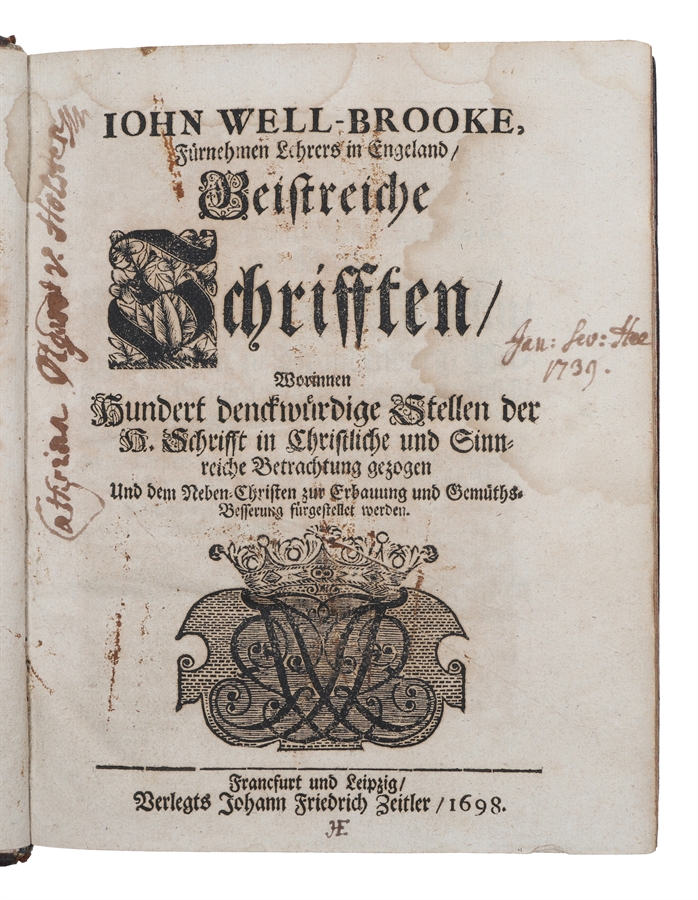 IOHN WELL-BROOKE,
Fürnehmen Lehrers in Engeland/
Geistreiche
Schrifften/
Worinnen
Hundert denckwürdige Stellen der
H. Schrifft in Christliche und Sinn-
reiche Betrachtung gezogen
Und dem Neben-Christen zur Erbauung und Gemüths-
Besserung fürgestellet werden.
Francfurt und Leipzig/
Verlegts Johann Friedrich Zeitler/1698.
HE
Jan:
1739.
v. Holsten